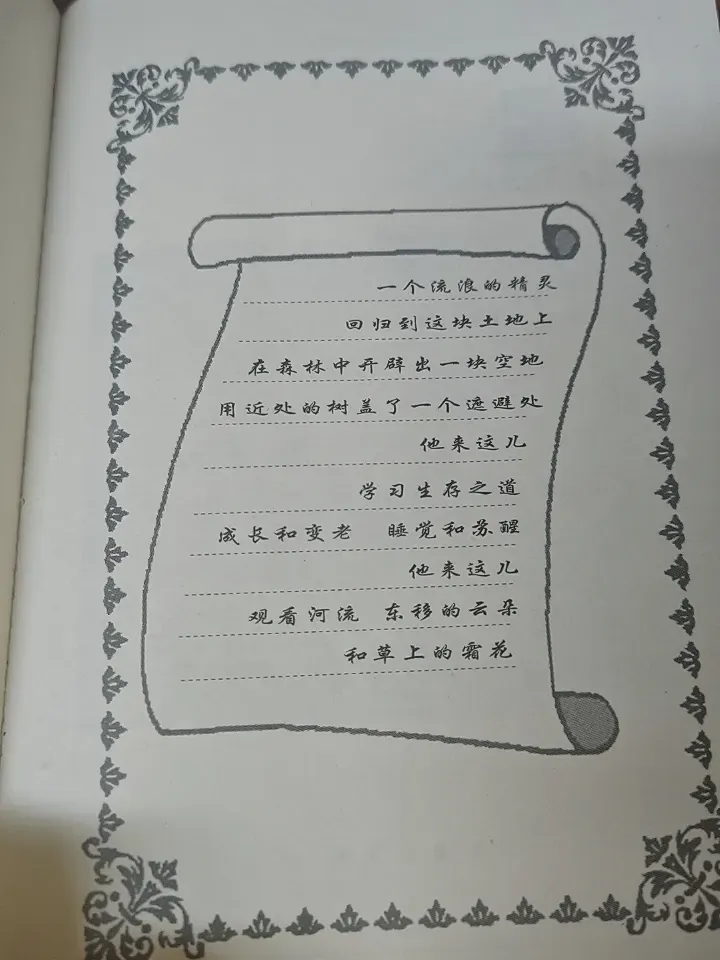 一个流浪的精灵
回归到这块土地上
在森林中开辟出一块空地
用近处的树盖了一个遮避处
他来这儿
学习生存之道
成长和变老 睡觉和苏醒
他来这儿
观看河流 东移的云朵
和草上的霜花